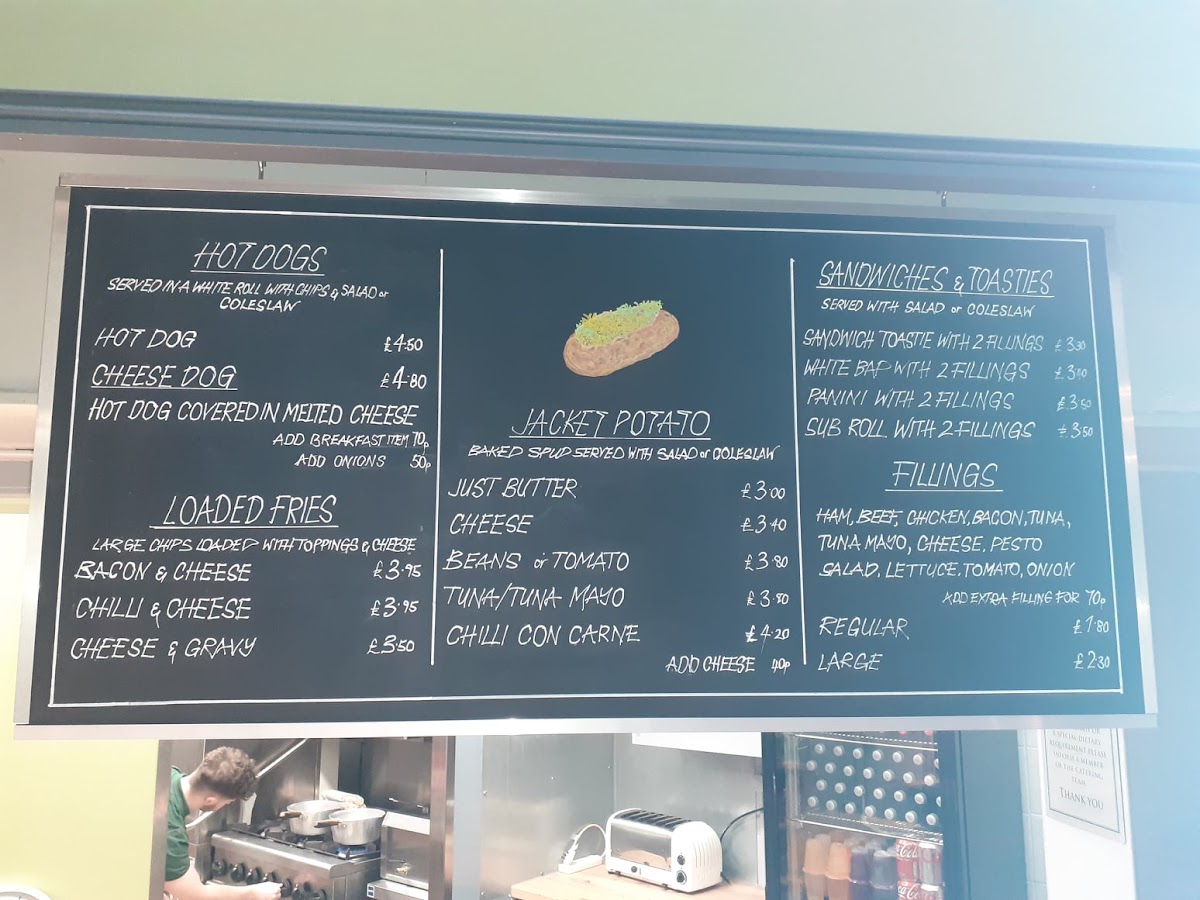 HOT DOGS
SERVED IN A WHITE ROLL WITH CHIPS & SALAD or
COLESLAW
HOT DOG £4.50
CHEESE DOG £4.80
HOT DOG COVERED IN MELTED CHEESE
ADD BREAKFAST ITEM 70p
ADD ONIONS 50p
LOADED FRIES
LARGE CHIPS LOADED WITH TOPPINGS & CHEESE
BACON & CHEESE £3.95
CHILLI & CHEESE £3.95
CHEESE & GRAVY £3.50
JACKET POTATO
BAKED SPUD SERVED WITH SALAD or COLESLAW
JUST BUTTER £3.00
CHEESE £3.40
BEANS or TOMATO £3.80
TUNA/TUNA MAYO £3.50
CHILLI CON CARNE £4.20
ADD CHEESE 40p
SANDWICHES & TOASTIES
SERVED WITH SALAD or COLESLAW
SANDWICH TOASTIE WITH 2 FILLINGS £3.30
WHITE BAP WITH 2 FILLINGS
PANINI WITH 2 FILLINGS £3.50
SUB ROLL WITH 2 FILLINGS £3.50
FILLINGS
HAM, BEEF, CHICKEN, BACON, TUNA,
TUNA MAYO, CHEESE, PESTO
SALAD, LETTUCE, TOMATO, ONION
ADD EXTRA FILLING FOR 70p
REGULAR £1.80
LARGE £2.30
SPECIAL DIETARY
REQUIREMENT PLEASE
INFORM A MEMBER
OF THE CATERING
TEAM
THANK YOU
Coca-Cola